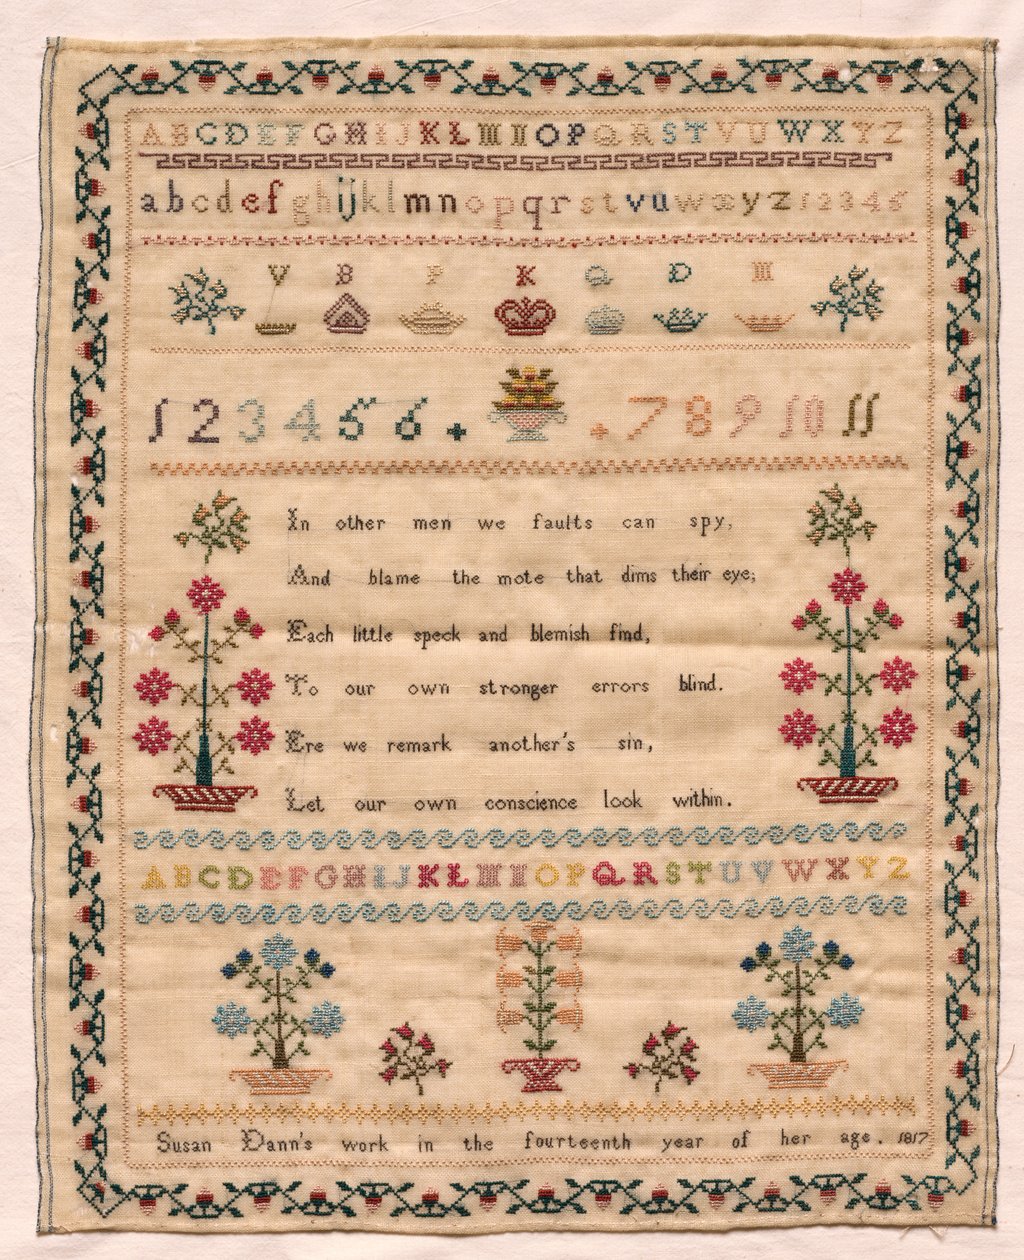 ABCDEFGHIJKLMNOPQRSTVUWXYZ
abcdefghijklmnopqrstvuwxyz123456
V B P K Q D M
1 2 3 4 5 6 . 7 8 9 10 11
In other men we faults can spy,
And blame the mote that dims their eye;
Each little speck and blemish find,
To our own stronger errors blind.
Ere we remark another's sin,
Let our own conscience look within.
ABCDEFGHIJKLMNOPQRSTUVWXYZ
Susan Dann's work in the fourteenth year of her age. 1817